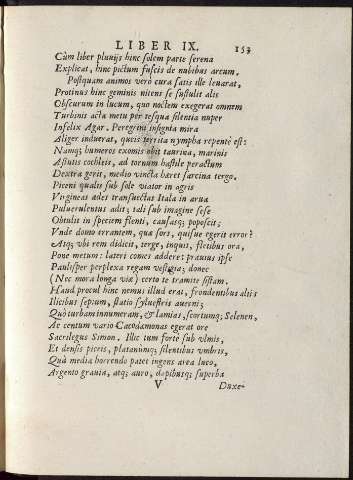 LIBER IX. 153
Cùm liber pluuijs hinc solem parte serena
Explicat, hinc pictum fuscis de nubibus arcum.
Postquam animos verò cura satis ille leuarat,
Protinus hinc geminis nitens se sustulit alis
Obscurum in lucum, quo noctem exegerat omnem
Turbinis acta metu per tesqua silentia nuper
Infelix Agar. Peregrini insignia mira
Aliger induerat, queis territa nympha repentè est:
Namq; humeros exomis obit taurina, marinis
Astutis cochleis, ad tornum hastile peractum
Dextra gerit, medio vincta hæret sarcina tergo.
Piceni qualis sub sole viator in agris
Virgineas ædes transuectas Itala in arua
Puluerulentus adit; tali sub imagine sese
Obtulit in speciem flenti, causasq; poposcit;
Vnde domo errantem, quæ sors, quisue egerit error?
Atq; vbi rem didicit, terge, inquit, flctibus ora,
Pone metum: lateri comes addere: præuius ipse
Paulisper perplexa regam vestigia; donec
(Nec mora longa viæ) certo te tramite sistam.
Haud procul hinc nemus illud erat, frondentibus altis
Ilicibus septum, statio syluestris auerni;
Quò turbam innumeram, & lamias, scortumq; Selenen,
Ac centum vario Cacodæmonas egerat ore
Sacrilegus Simon. Illic tum forte sub vlmis,
Et densis piceis, platanúmq; silentibus vmbris,
Quà media horrendo patet ingens area luco,
Argento grauia, atq; auro, dapibusq; superba
V Duxe-